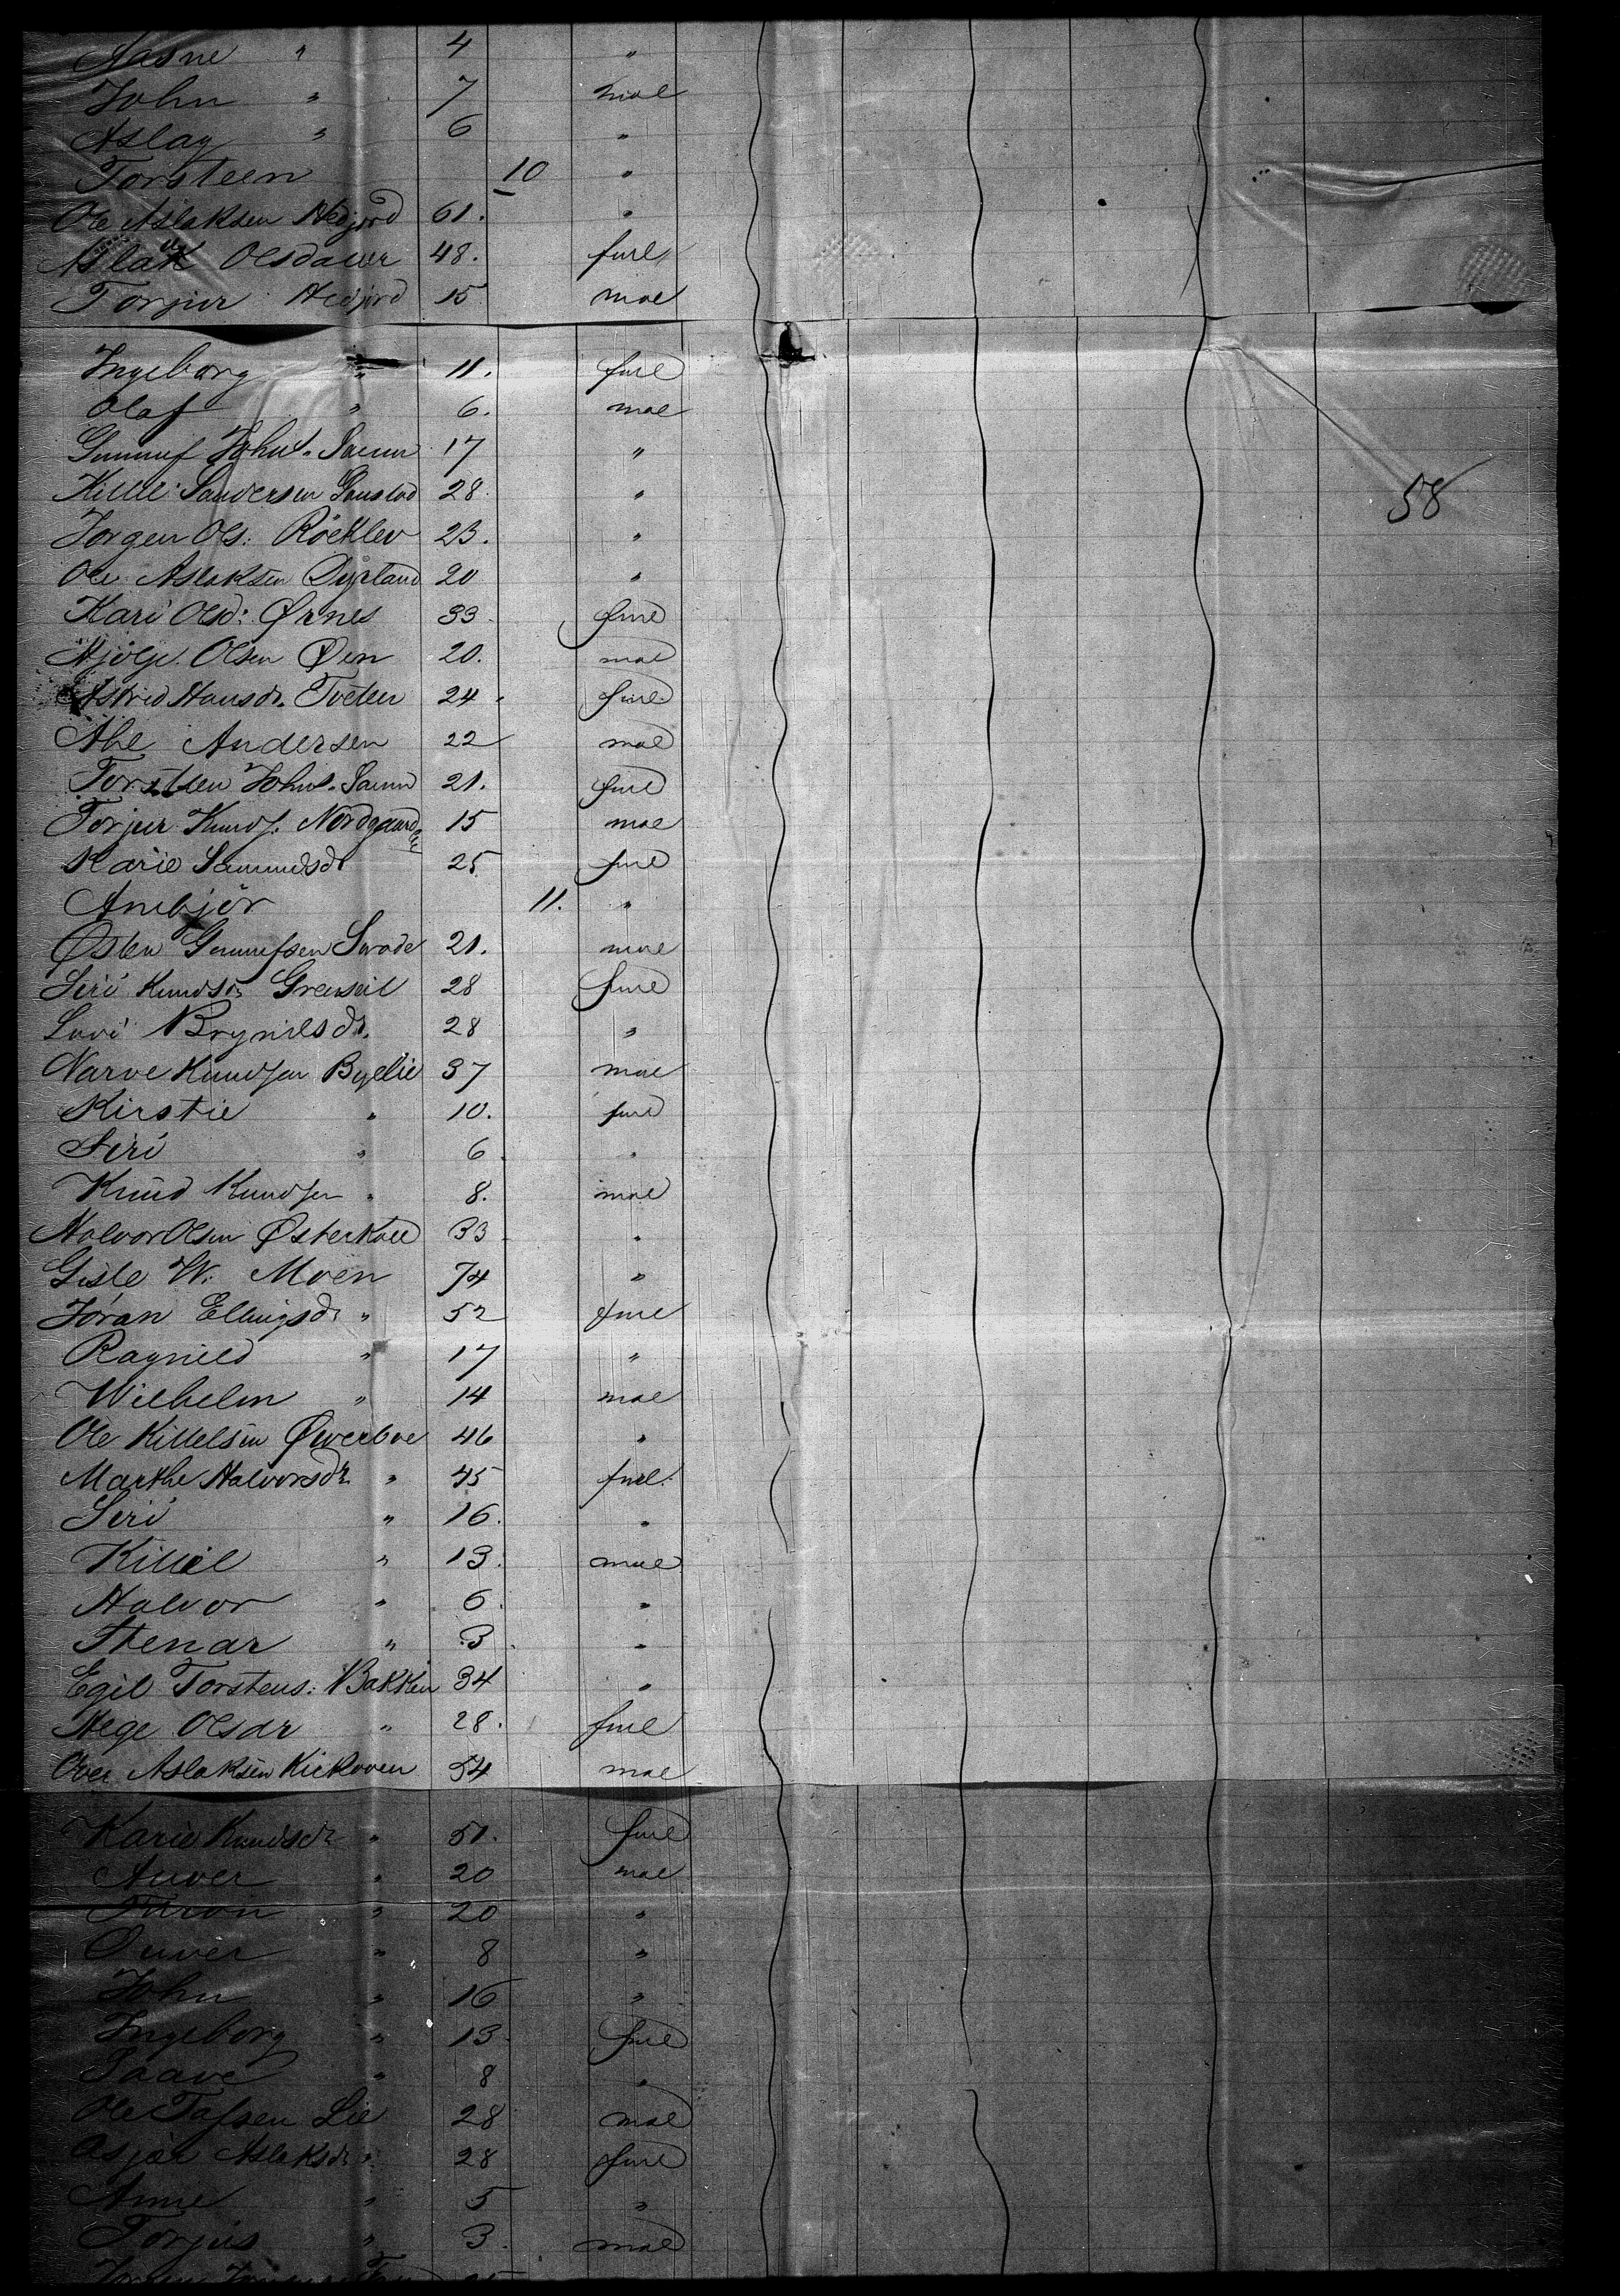 Aasne " 4 "
John " 7 mal
Aslag " 6 "
Torsteen 10 "
Ole Aslaksen Hedjord 61. "
Aslak Olsdatter 48. fml
Torjur Hedjord 15 mal
Ingeborg " 11. fml
Olaf " 6. mal
Gunnuf Johns. 17 "
Kittel Sandersen 28. "
Jorgen Ols: Röeklev 23. "
Ole Aslaksen Dyrland 20 "
Kari Olsd: Ørnes 33. fml
Olsen Øen 20. mal
Astrid Hansdr. Tveten 24. fml
Ahe Andersen 22 mal
Torsteen Johns. 21. fml
Torjur Knuds. Nordgaarden 15 mal
Karie 25. fml
Anebjör 11. "
Østen Gunnufsen 21. mal
Siri Knudsdr 28 fml
Brynilsdr. 28 "
Narve Knudsen Byelie 37 mal
Kirstie " 10. fml
Siri " 6. "
Knud Knudsen " 8. mal
Halvor Olsen Østerkall 33. "
Gisle W: Moen 74 "
Joran Ellingsdr " 52 fml
Ragnild " 17 "
Wilhelm " 14 mal
Ole Kittelsen Øverboe 46 "
Marthe Halvorsdr " 45 fml.
Siri " 16. "
Kittil " 13. mal
Halvor " 6. "
Stenar " 3. "
Egil Torstens: Bakken 34 "
Hege Olsdr " 28. fml
Aslaksen 54 mal
Karie Knudsdr " 51. fml
Anver " 20 mal
" 20 "
Ouver " 8 "
John " 16 "
Ingeborg " 13. fml
Saave " 8 "
Ole Tafsen Lie 28 mal
Asjör Aslaksdr " 28 fml
Anne " 5 "
Torjus " 3. mal
58